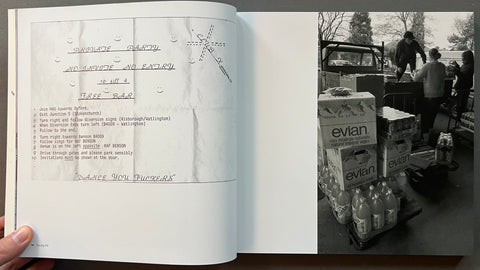 PRIVATE PARTY
NO INVITE NO ENTRY
10 till 6
FREE BAR
Join M40 towards Oxford.
Exit Junction 6
Turn right and follow diversion signs (Risborough/Watlington)
When Diversion Ends turn left (B4009 - Watlington)
Follow to the end.
Turn right towards Benson B4009
Follow signs for RAF BENSON
Venue is on the left opposite RAF BENSON
Drive through gates and please park sensibly
Invitations must be shown at the door.
DANCE YOU FUCKERS
evian
evian
evian